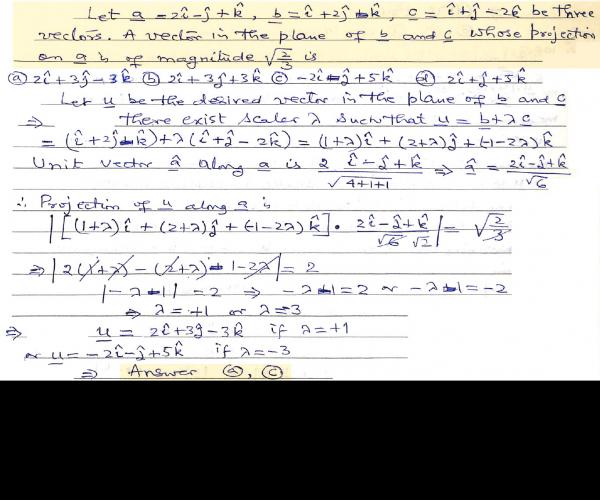 Let a = 2î - ĵ + k̂, b = î + 2ĵ - k̂, c = î + ĵ - 2k̂ be three
vectors. A vector in the plane of b and c whose projection
on a is of magnitude √(2/3) is
(a) 2î + 3ĵ - 3k̂ (b) 2î + 3ĵ + 3k̂ (c) -2î - ĵ + 5k̂ (d) 2î + ĵ + 5k̂
Let u be the desired vector in the plane of b and c
⇒ there exist scaler λ such that u = b + λc
= (î + 2ĵ - k̂) + λ(î + ĵ - 2k̂) = (1+λ)î + (2+λ)ĵ + (-1-2λ)k̂
Unit vector â along a is (2î - ĵ + k̂)/√(4+1+1) ⇒ â = (2î - ĵ + k̂)/√6
∴ Projection of u along a is
|[(1+λ)î + (2+λ)ĵ + (-1-2λ)k̂] · (2î - ĵ + k̂)/(√6 √2)| = √(2/3)
⇒ |2(1+λ) - (2+λ) - 1 - 2λ| = 2
|-λ-1| = 2 ⇒ -λ-1 = 2 or -λ-1 = -2
⇒ λ = +1 or λ = -3
⇒ u = 2î + 3ĵ - 3k̂ if λ = +1
or u = -2î - ĵ + 5k̂ if λ = -3
⇒ Answer (a), (c)